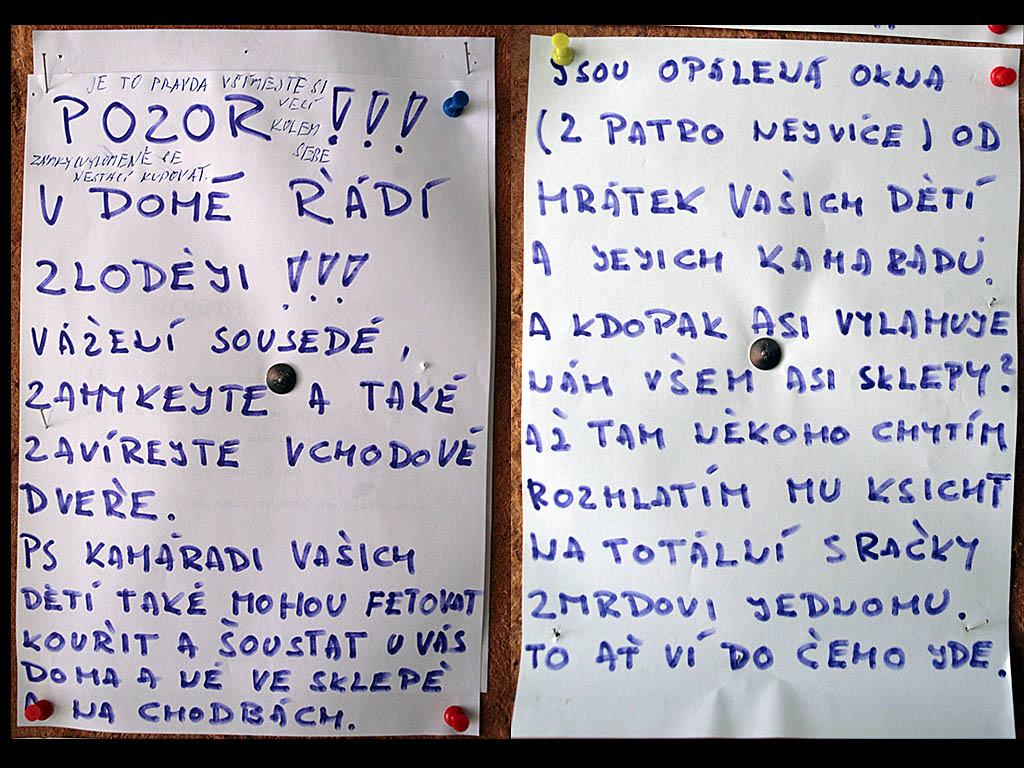 JE TO PRAVDA VŠIMEJTE SI
VECÍ
KOLEM
SEBE
POZOR !!!
ZÁMKY (VYLOMENÉ SE
NESTAČÍ KUPOVAT.
V DOMĚ ŘÁDÍ
ZLODĚJI !!!
VÁŽENÍ SOUSEDÉ,
ZAMYKEJTE A TAKÉ
ZAVÍREJTE VCHODOVÉ
DVEŘE.
PS KAMÁRADI VAŠICH
DĚTÍ TAKÉ MOHOU FETOVAT
KOUŘIT A ŠOUSTAT U VÁS
DOMA A NÉ VE SKLEPĚ
A NA CHODBÁCH.
JSOU OPÁLENÁ OKNA
(2 PATRO NEJVÍCE) OD
HRÁTEK VAŠICH DĚTÍ
A JEJICH KAMARADŮ.
A KDOPAK ASI VYLAMUJE
NÁM VŠEM ASI SKLEPY?
AŽ TAM NĚKOHO CHYTÍM
ROZMLATÍM MU KSICHT
NA TOTÁLNÍ SRAČKY
ZMRDOVI JEDNOMU.
TO AŤ VÍ DO ČEHO JDE.